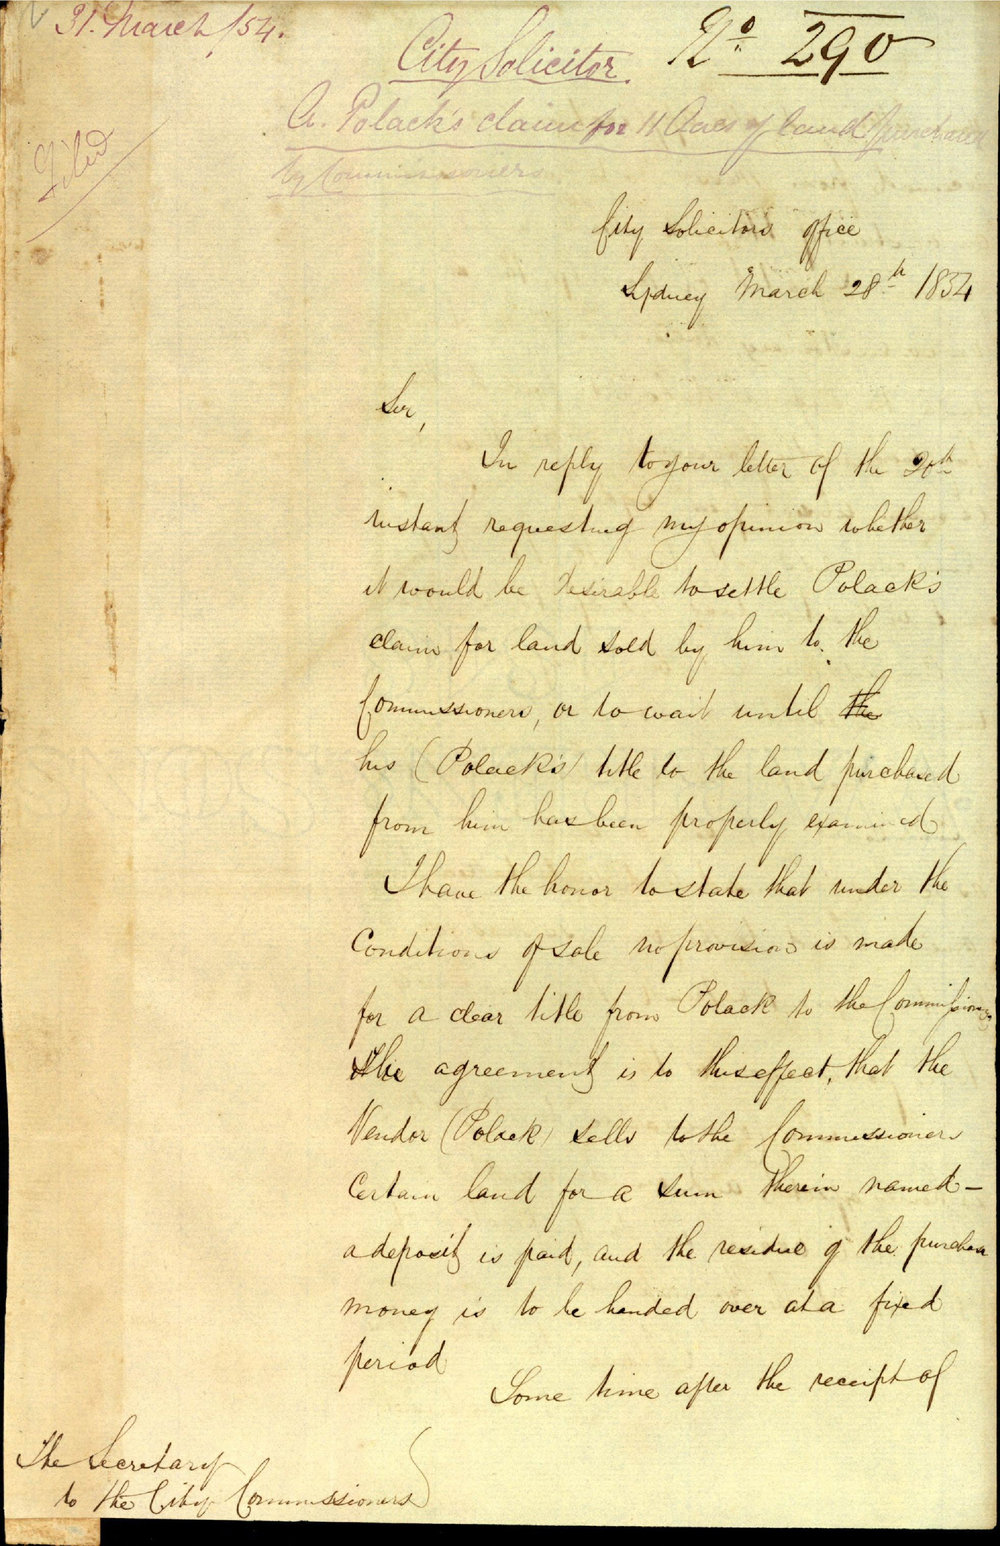 31. March /54.
City Solicitor.
No 290
A. Polack's claim for 11 Acres of land purchased
by Commissioners
Filed
City Solicitors office
Sydney March 28th 1854
Sir,
In reply to your letter of the 20th
instant requesting my opinion whether
it would be desirable to settle Polack's
claim for land sold by him to the
Commissioners, or to wait until the
his (Polack's) title to the land purchased
from him has been properly examined
I have the honor to state that under the
Conditions of sale no provision is made
for a clear title from Polack to the Commissioners
The agreement is to this effect, that the
Vendor (Polack) sells to the Commissioners
Certain land for a sum therein named –
a deposit is paid, and the residue of the purchase
money is to be handed over at a fixed
period
Some time after the receipt of
The Secretary
to the City Commissioners